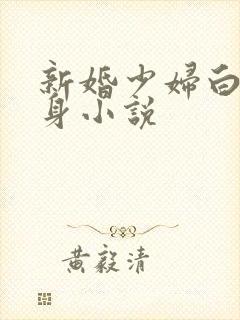 新婚少婦白
身小說
黃毅清